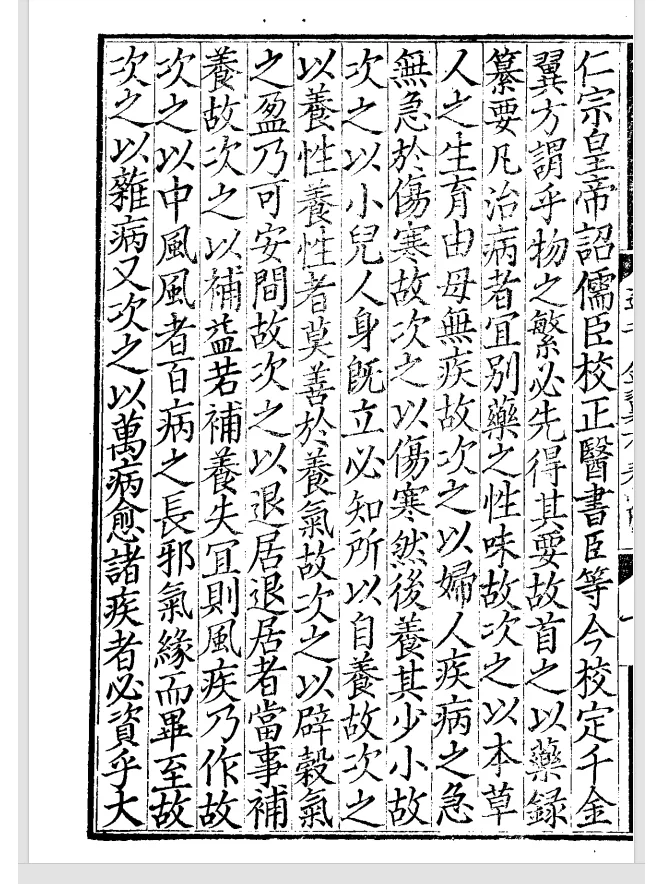 仁宗皇帝詔儒臣校正醫書臣等今校定千金
翼方謂乎物之繁必先得其要故首之以藥録
纂要凡治病者宜别藥之性味故次之以本草
人之生育由母無疾故次之以婦人疾病之急
無急於傷寒故次之以傷寒然後養其少小故
次之以小兒人身旣立必知所以自養故次之
以養性養性者莫善於養氣故次之以辟穀氣
之盈乃可安閒故次之以退居退居者當事補
養故次之以補益若補養失宜則風疾乃作故
次之以中風風者百病之長邪氣緣而畢至故
次之以雜病又次之以萬病愈諸疾者必資乎大